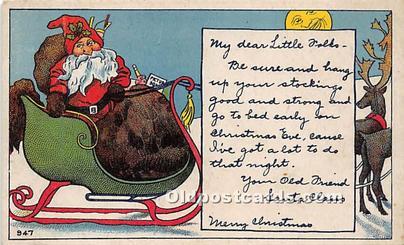 My dear Little Folks-
Be sure and hang
up your stockings
good and strong and
go to bed early on
Christmas Eve, cause
I've got a lot to do
that night.
Your Old Friend
Santa Claus
Merry Christmas
947
Oldpostcards.com